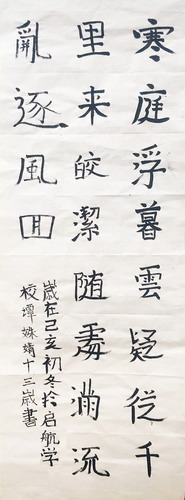 寒庭浮暮雲疑從千
里来皎潔随處滿流
亂逐風回
歲在己亥初冬於启航学
校譚姝婧十三歲書